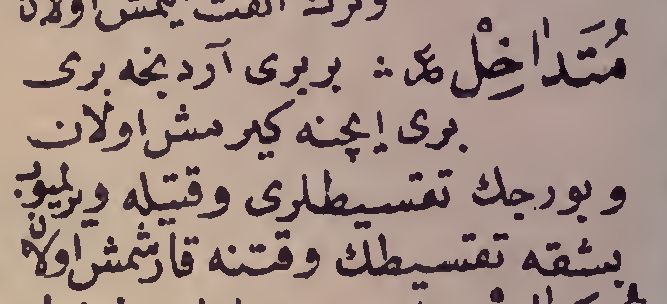 وترك الفت ايمش اولان
مُتَداخِلْ ع بربرى آردنجه برى
برى ايچنه كيرمش اولان
و بورجك تقسيطلرى وقتيله ويرلميوب
بشقه تقسيطك وقتنه قارشمش اولان